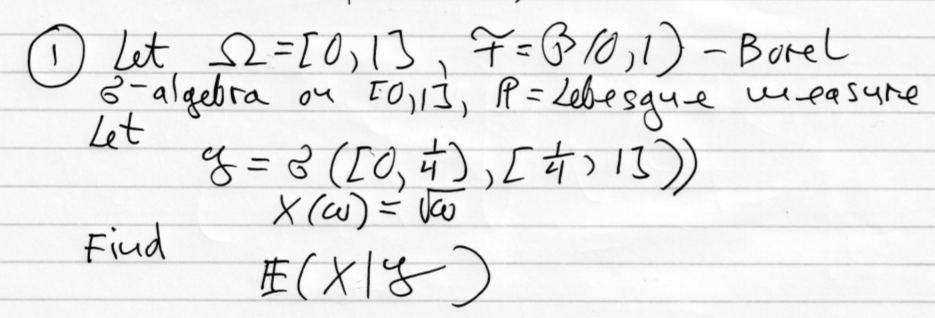 ① Let Ω = [0,1], F = B(0,1) - Borel
σ-algebra on [0,1], ℙ = Lebesgue measure
Let
𝒢 = σ([0, 1/4), [1/4, 1]))
X(ω) = √ω
Find
𝔼(X|𝒢)